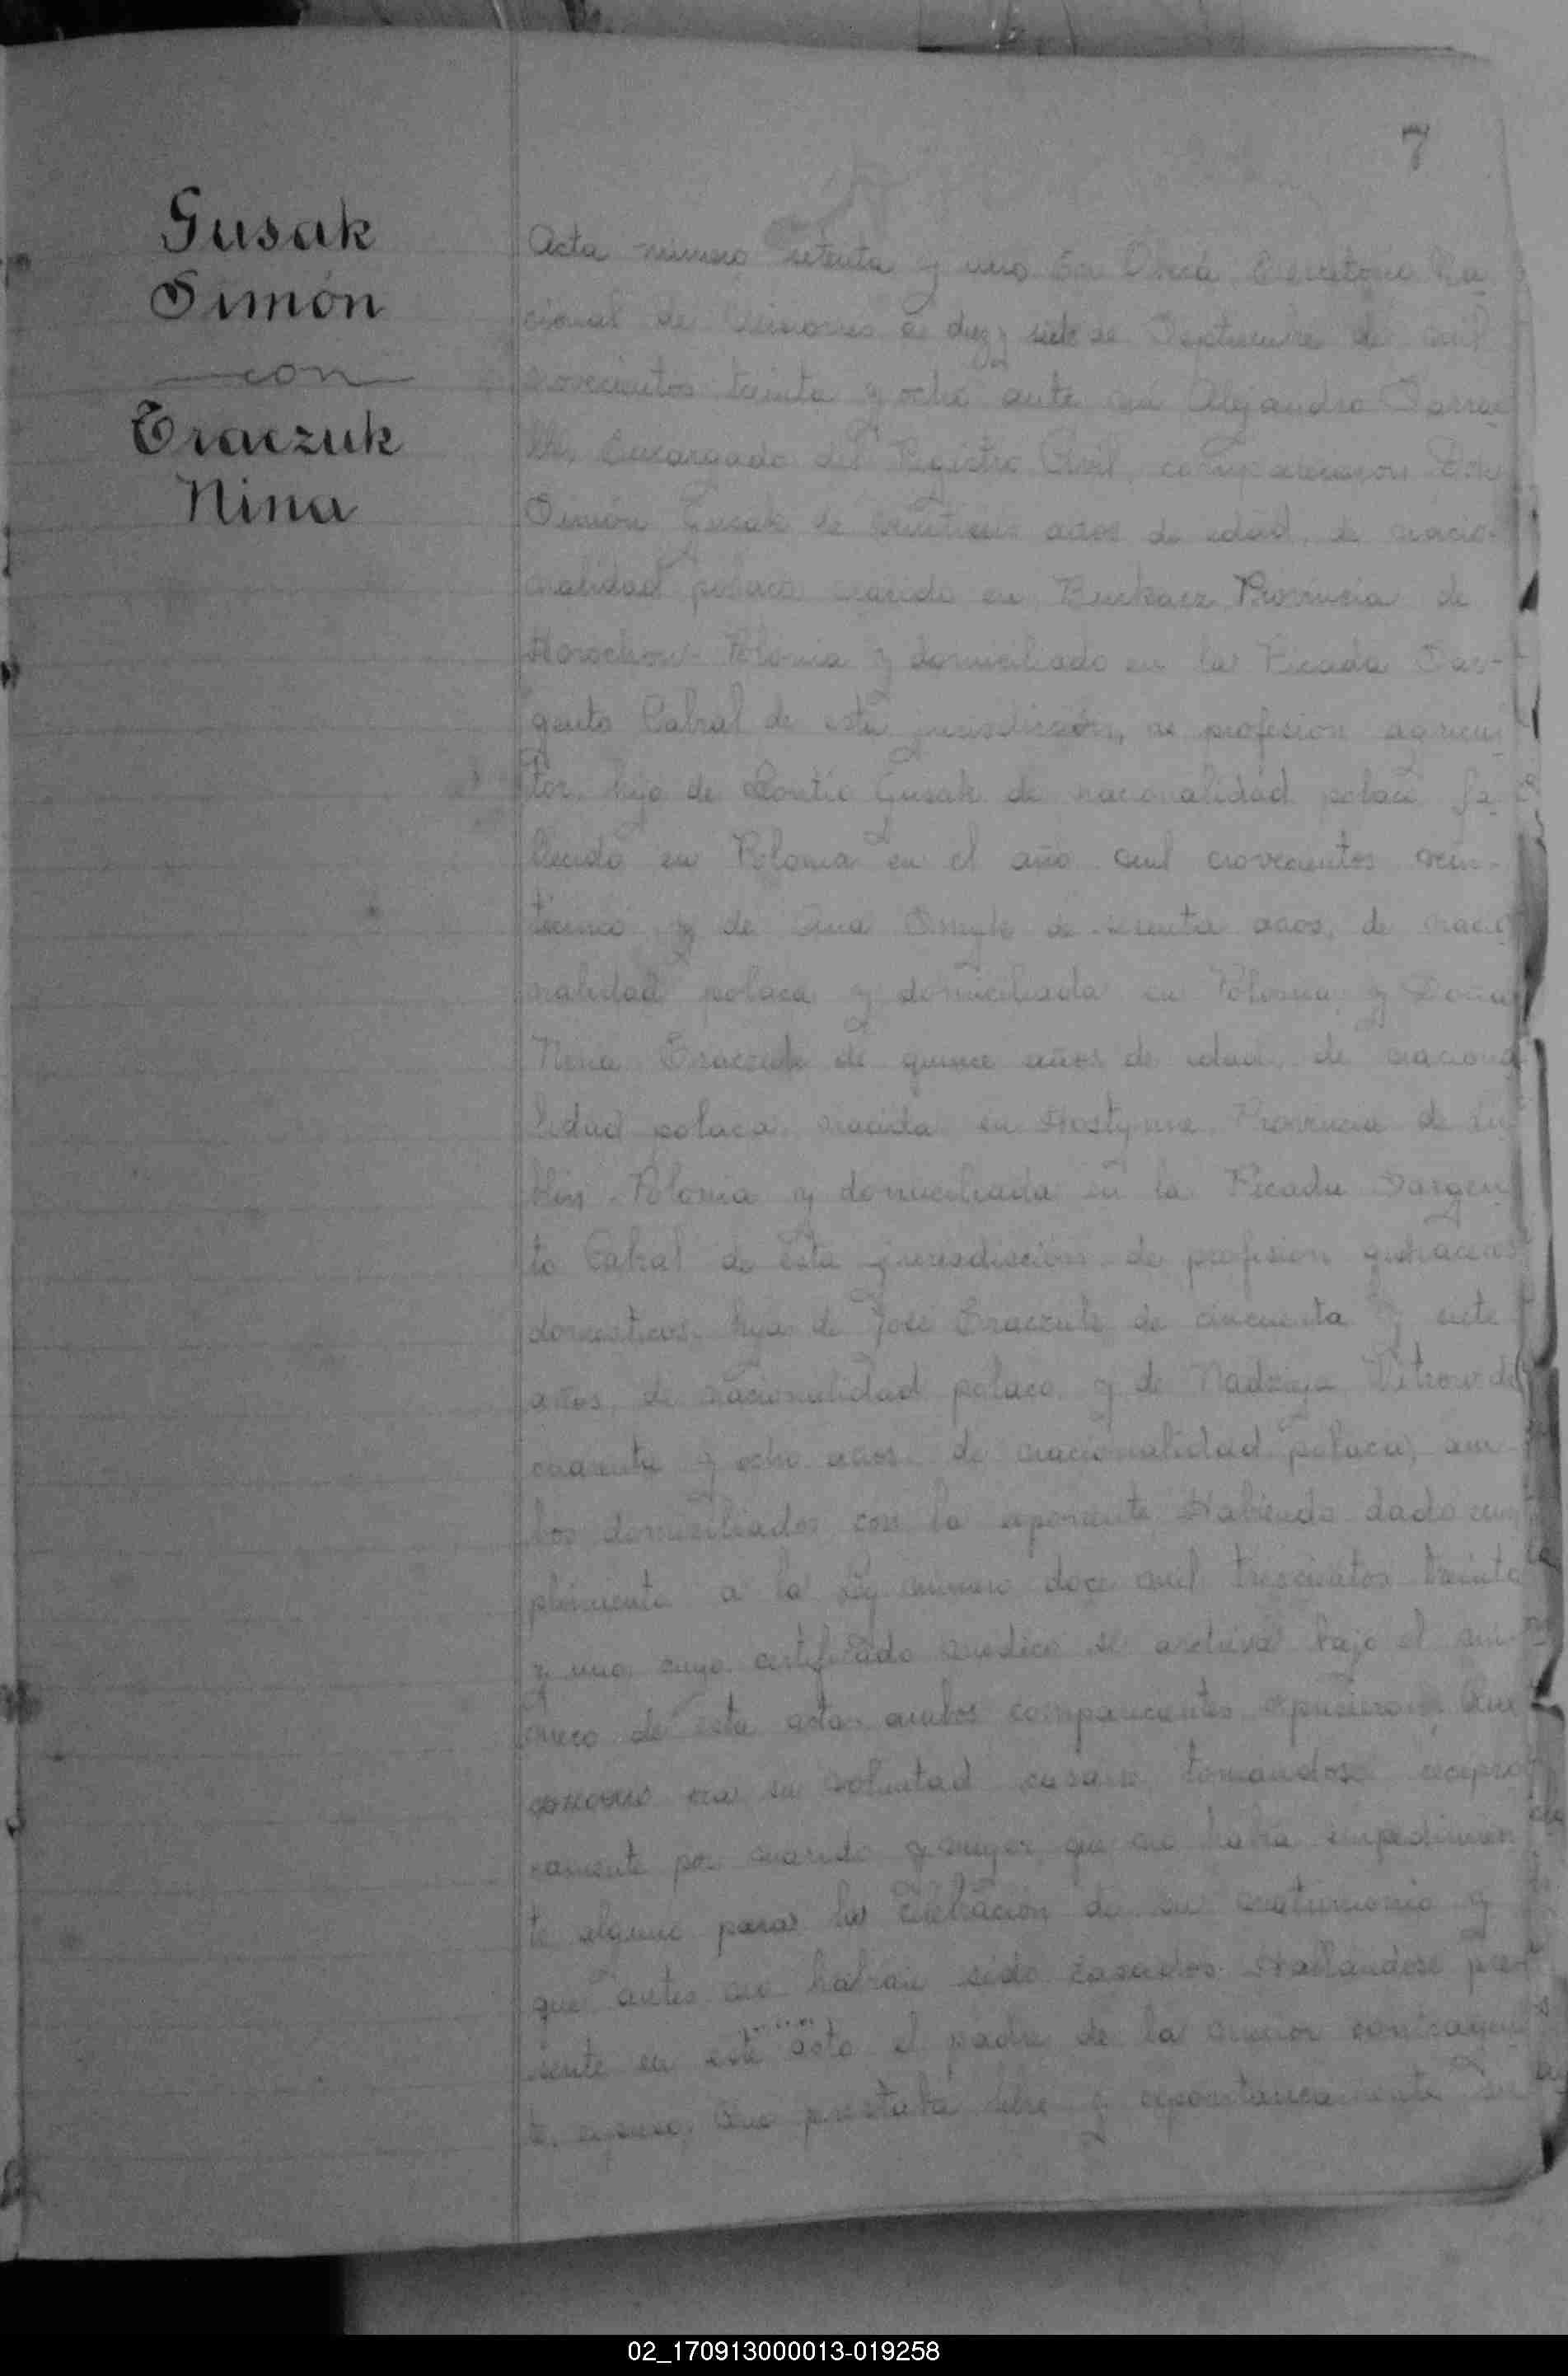 7
Gusak
Simón
con
Traczuk
Nina
Acta número setenta y uno En Oberá, Territorio Na
cional de Misiones a diez y siete de Septiembre de mil
novecientos treinta y ocho ante mi Alejandro
Encargado del Registro Civil, comparecieron Don
Simón Gusak de años de edad, de nacio-
nalidad polaco nacido en Provincia de
Horochow - Polonia y domiciliado en la Picada Sar-
gento Cabral de esta jurisdicción, de profesion agricul
tor, hijo de Gusak de nacionalidad polaca fa
llecido en Polonia en el año mil novecientos vein-
ticinco y de Ana de años, de nacio
nalidad polaca y domiciliada en Polonia y Doña
Nina Traczuk de quince años de edad, de naciona
lidad polaca, nacida en Provincia de Lu
blin - Polonia y domiciliada en la Picada Sargen
to Cabral de esta jurisdicción de profesion quehaceres
domesticos, hija de José Traczuk de cincuenta y siete
años, de nacionalidad polaco y de de
cuarenta y ocho años de nacionalidad polaca, am
bos domiciliados con la exponente. Habiendo dado cum
plimiento a la Ley número doce mil trescientos treinta
y uno, cuyo certificado medico se archiva bajo el nú-
mero de esta acta, ambos comparecientes expusieron: Que
era su voluntad casarse, tomandose recipro
camente por marido y mujer que no había impedimen
to alguno para la de su matrimonio y
que antes no habian sido casados. Hallandose pre
sente en este acto el padre de la menor contrayen
te, expuso: Que prestaba libre y espontaneamente su
02_170913000013-019258